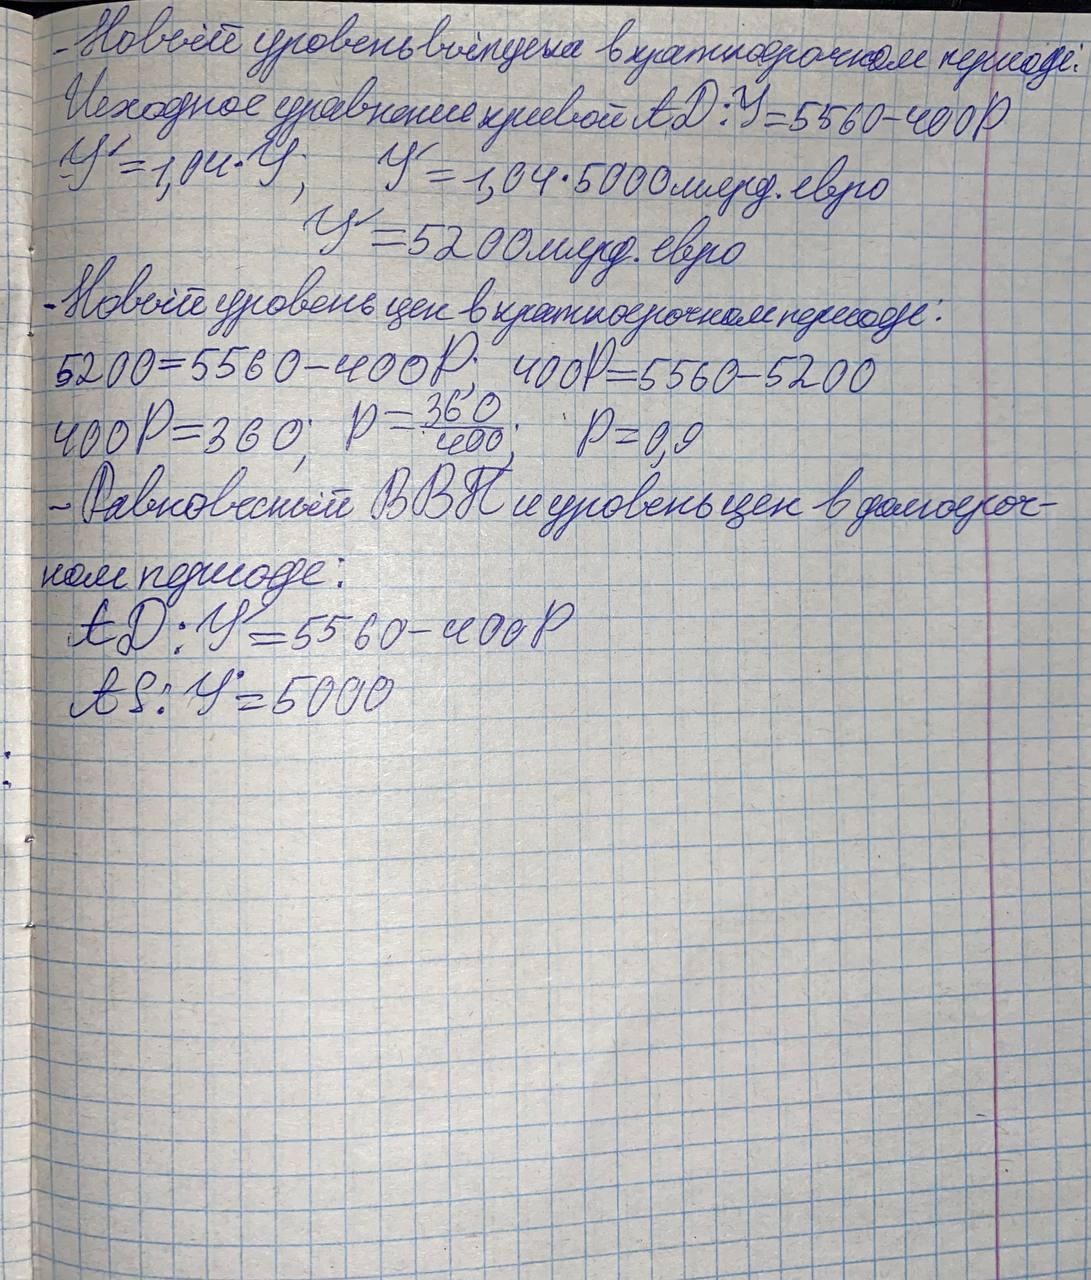 - Новый уровень выпуска в краткосрочном периоде:
Исходное уравнение кривой AD: У=5560-400P
У'=1,04·У; У'=1,04·5000 млрд. евро
У'=5200 млрд. евро
- Новый уровень цен в краткосрочном периоде:
5200=5560-400P; 400P=5560-5200
400P=360; P=360/400; P=0,9
- Равновесный ВВП и уровень цен в долгосроч-
ном периоде:
AD: У'=5560-400P
AS: У'=5000